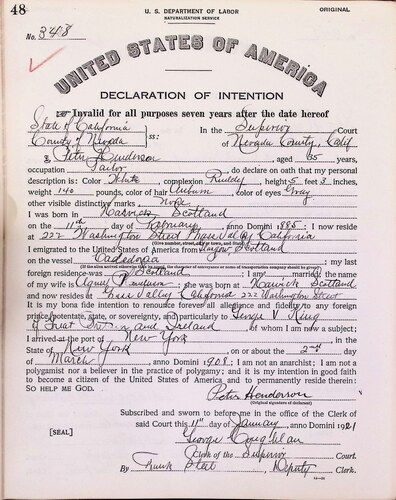 48
U. S. DEPARTMENT OF LABOR
NATURALIZATION SERVICE
ORIGINAL
No. 348
UNITED STATES OF AMERICA
DECLARATION OF INTENTION
Invalid for all purposes seven years after the date hereof
State of California
County of Nevada
ss:
In the Superior Court
of Nevada County, Calif
I, Peter Henderson, aged 35 years,
occupation Tailor, do declare on oath that my personal
description is: Color White, complexion Ruddy, height 5 feet 3 inches,
weight 140 pounds, color of hair Auburn, color of eyes Gray
other visible distinctive marks None
I was born in Hawick Scotland
on the 11th day of February, anno Domini 1885; I now reside
at 222 Washington Street Grass Valley California
(Give number, street, city or town, and State.)
I emigrated to the United States of America from Glasgow, Scotland
on the vessel Caledonia; my last
(If the alien arrived otherwise than by vessel, the character of conveyance or name of transportation company should be given.)
foreign residence was Scotland; I am married; the name
of my wife is Agnes Henderson; she was born at Hawick Scotland
and now resides at Grass Valley California 222 Washington Street
It is my bona fide intention to renounce forever all allegiance and fidelity to any foreign
prince, potentate, state, or sovereignty, and particularly to George V King
of Great Britain and Ireland, of whom I am now a subject;
I arrived at the port of New York, in the
State of New York, on or about the 2nd day
of March, anno Domini 1908; I am not an anarchist; I am not a
polygamist nor a believer in the practice of polygamy; and it is my intention in good faith
to become a citizen of the United States of America and to permanently reside therein:
SO HELP ME GOD.
Peter Henderson
(Original signature of declarant)
Subscribed and sworn to before me in the office of the Clerk of
said Court this 11th day of January, anno Domini 1921
[SEAL]
George Coughlan
Clerk of the Superior Court.
By Frank Steel, Deputy Clerk.